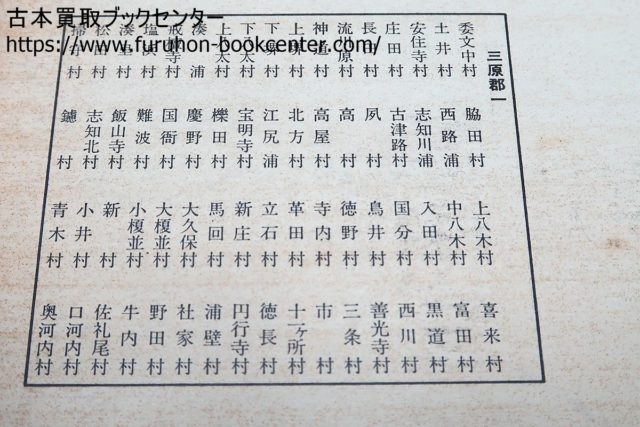 古本買取ブックセンター
https://www.furuhon-bookcenter.com/
三原郡一
委文中村
土井村
安住寺村
庄田村
長田村
流原村
神道村
上村
下村
下太村
上太村
湊浦
戒壇寺村
塩浜村
湊里村
松田村
掃守村
脇田村
西路浦
志知川浦
古津路村
夙村
高村
高屋村
北方村
江尻浦
宝明寺村
櫟田村
慶野村
国衙村
難波村
飯山寺村
志知北村
鑪村
上八木村
中八木村
入田村
国分村
鳥井村
徳野村
寺内村
革田村
立石村
新庄村
馬回村
大久保村
大榎並村
小榎並村
新村
小井村
青木村
喜来村
富田村
黒道村
西川村
善光寺村
三条村
市村
十一ヶ所村
徳長村
円行寺村
浦壁村
社家村
野田村
牛内村
佐礼尾村
口河内村
奥河内村